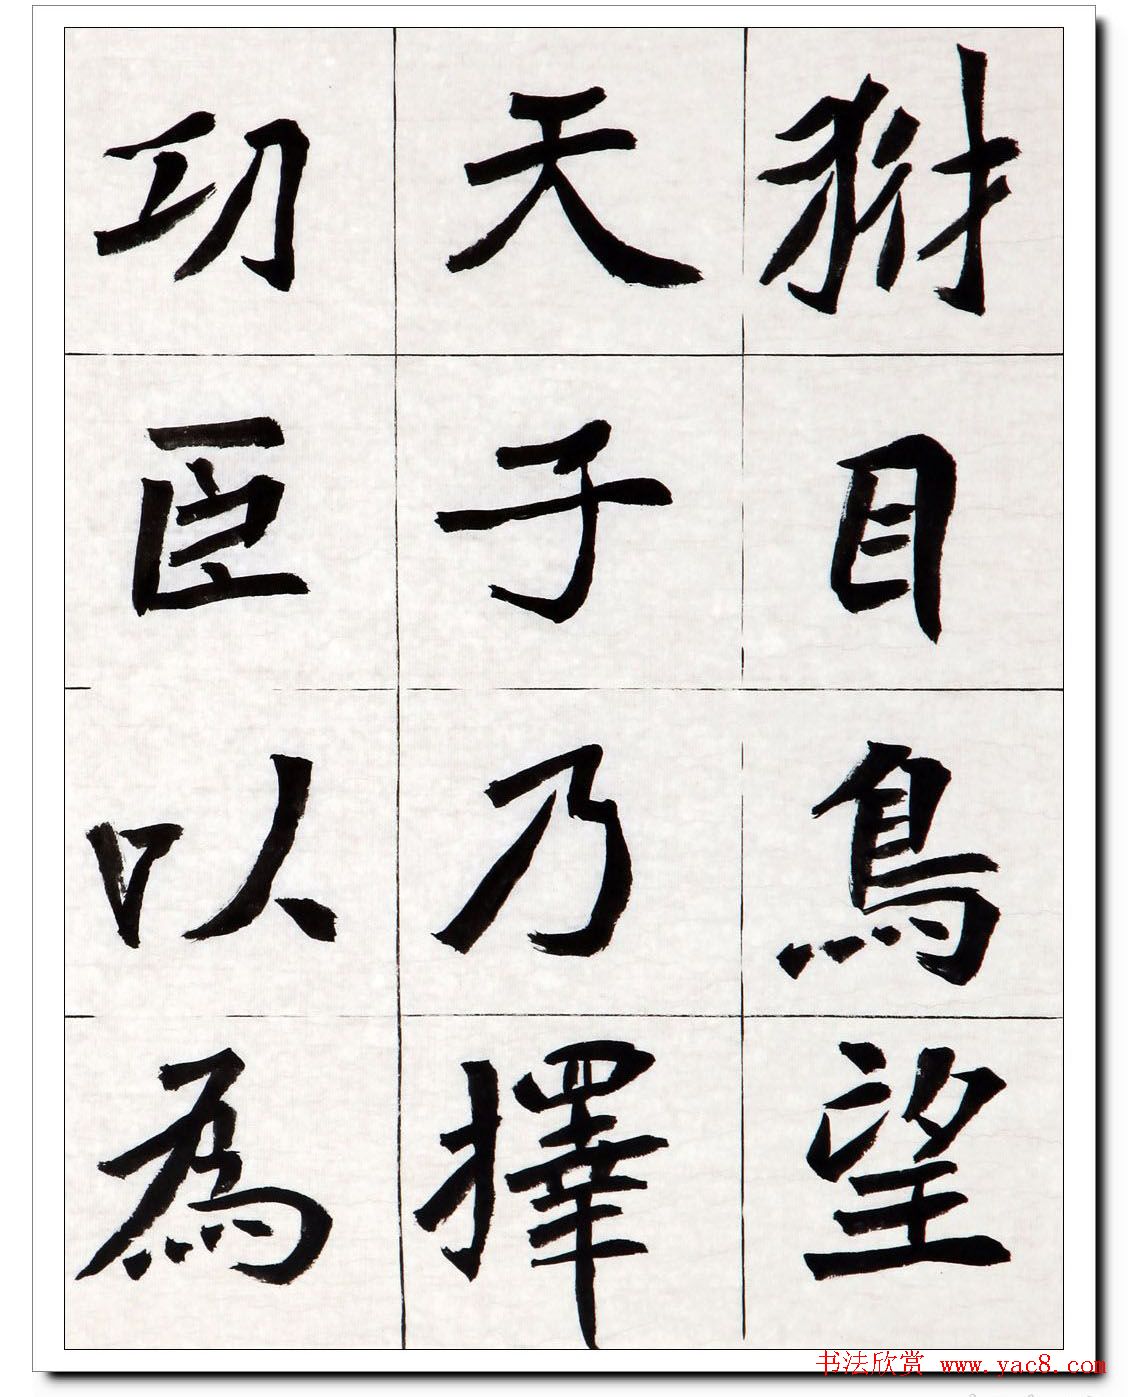 豺目鳥望
天子乃擇
功臣以為
书法欣赏 www.yac8.com